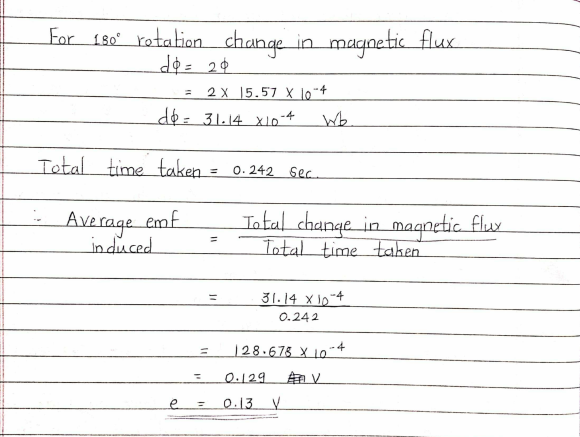 For 180° rotation change in magnetic flux
dϕ = 2ϕ
= 2 × 15.57 × 10⁻⁴
dϕ = 31.14 ×10⁻⁴ Wb
Total time taken = 0.242 sec.
∴ Average emf induced = Total change in magnetic flux / Total time taken
= 31.14 × 10⁻⁴ / 0.242
= 128.678 × 10⁻⁴
= 0.129 V
e = 0.13 V